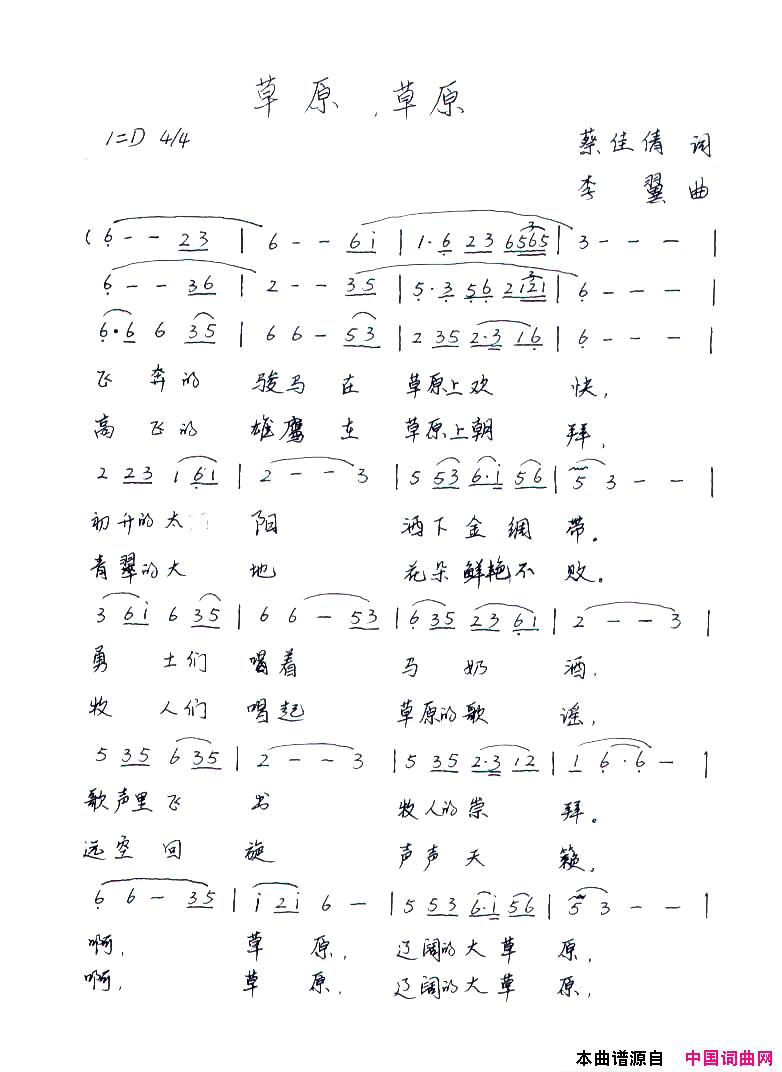 草原，草原
1=D 4/4
蔡佳倩 词
李翼 曲
( 6 - - 23 | 6 - - 6i | 1·6 23 6565 | 3 - - - |
6 - - 36 | 2 - - 35 | 5·3 56 2121 | 6 - - - |
6·6 6 35 | 6 6 - 53 | 2 35 2·3 16 | 6 - - - |
飞奔的 骏马在 草原上欢 快，
高飞的 雄鹰在 草原上朝 拜，
2 23 1 61 | 2 - - 3 | 5 53 6·i 56 | 5 3 - - |
初升的太 阳 洒下金绸 带。
青翠的大 地 花朵鲜艳不 败。
3 6i 6 35 | 6 6 - 53 | 6 35 23 61 | 2 - - 3 |
勇士们 喝着 马奶 酒，
牧人们 唱起 草原的歌 谣，
5 35 6 35 | 2 - - 3 | 5 35 2·3 12 | 1 6·6 - |
歌声里飞 出 牧人的崇 拜。
远空回 旋 声声天 籁，
6 6 - 35 | i 2i 6 - | 5 53 6·i 56 | 5 3 - - |
啊， 草原， 辽阔的大草原，
啊， 草原， 辽阔的大草原，
本曲谱源自 中国词曲网